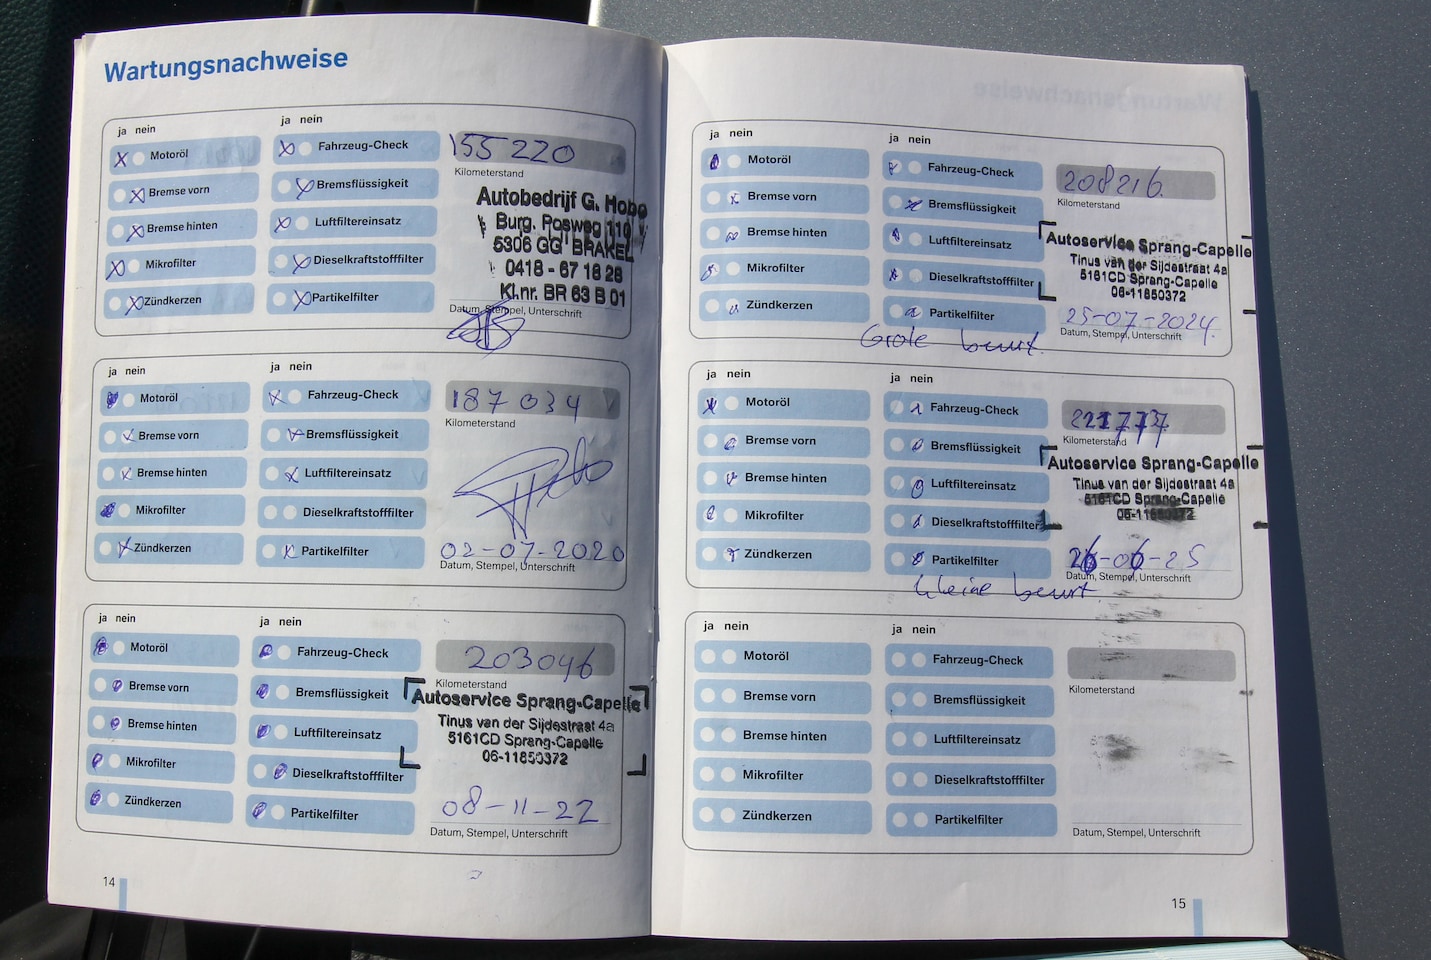 Wartungsnachweise
ja nein
ja nein
Motoröl
Fahrzeug-Check
155 220
Kilometerstand
Bremse vorn
Bremsflüssigkeit
Bremse hinten
Luftfiltereinsatz
Mikrofilter
Dieselkraftstofffilter
Zündkerzen
Partikelfilter
Autobedrijf G. Hobo
Burg. Posweg 110
5306 GG BRAKEL
0418 - 67 18 28
Kl.nr. BR 63 B 01
Datum, Stempel, Unterschrift
ja nein
ja nein
Motoröl
Fahrzeug-Check
187 034
Kilometerstand
Bremse vorn
Bremsflüssigkeit
Bremse hinten
Luftfiltereinsatz
Mikrofilter
Dieselkraftstofffilter
Zündkerzen
Partikelfilter
02-07-2020
Datum, Stempel, Unterschrift
ja nein
ja nein
Motoröl
Fahrzeug-Check
203046
Kilometerstand
Bremse vorn
Bremsflüssigkeit
Bremse hinten
Luftfiltereinsatz
Mikrofilter
Dieselkraftstofffilter
Zündkerzen
Partikelfilter
Autoservice Sprang-Capelle
Tinus van der Sijdestraat 4a
5161CD Sprang-Capelle
06-11850372
08-11-22
Datum, Stempel, Unterschrift
14
ja nein
ja nein
Motoröl
Fahrzeug-Check
208216
Kilometerstand
Bremse vorn
Bremsflüssigkeit
Bremse hinten
Luftfiltereinsatz
Mikrofilter
Dieselkraftstofffilter
Zündkerzen
Partikelfilter
Autoservice Sprang-Capelle
Tinus van der Sijdestraat 4a
5161CD Sprang-Capelle
06-11850372
25-07-2024
Datum, Stempel, Unterschrift
Grote beurt.
ja nein
ja nein
Motoröl
Fahrzeug-Check
Kilometerstand
Bremse vorn
Bremsflüssigkeit
Bremse hinten
Luftfiltereinsatz
Mikrofilter
Dieselkraftstofffilter
Zündkerzen
Partikelfilter
Autoservice Sprang-Capelle
Tinus van der Sijdestraat 4a
5161CD Sprang-Capelle
06-11850372
26-06-25
Datum, Stempel, Unterschrift
kleine beurt
ja nein
ja nein
Motoröl
Fahrzeug-Check
Kilometerstand
Bremse vorn
Bremsflüssigkeit
Bremse hinten
Luftfiltereinsatz
Mikrofilter
Dieselkraftstofffilter
Zündkerzen
Partikelfilter
Datum, Stempel, Unterschrift
15